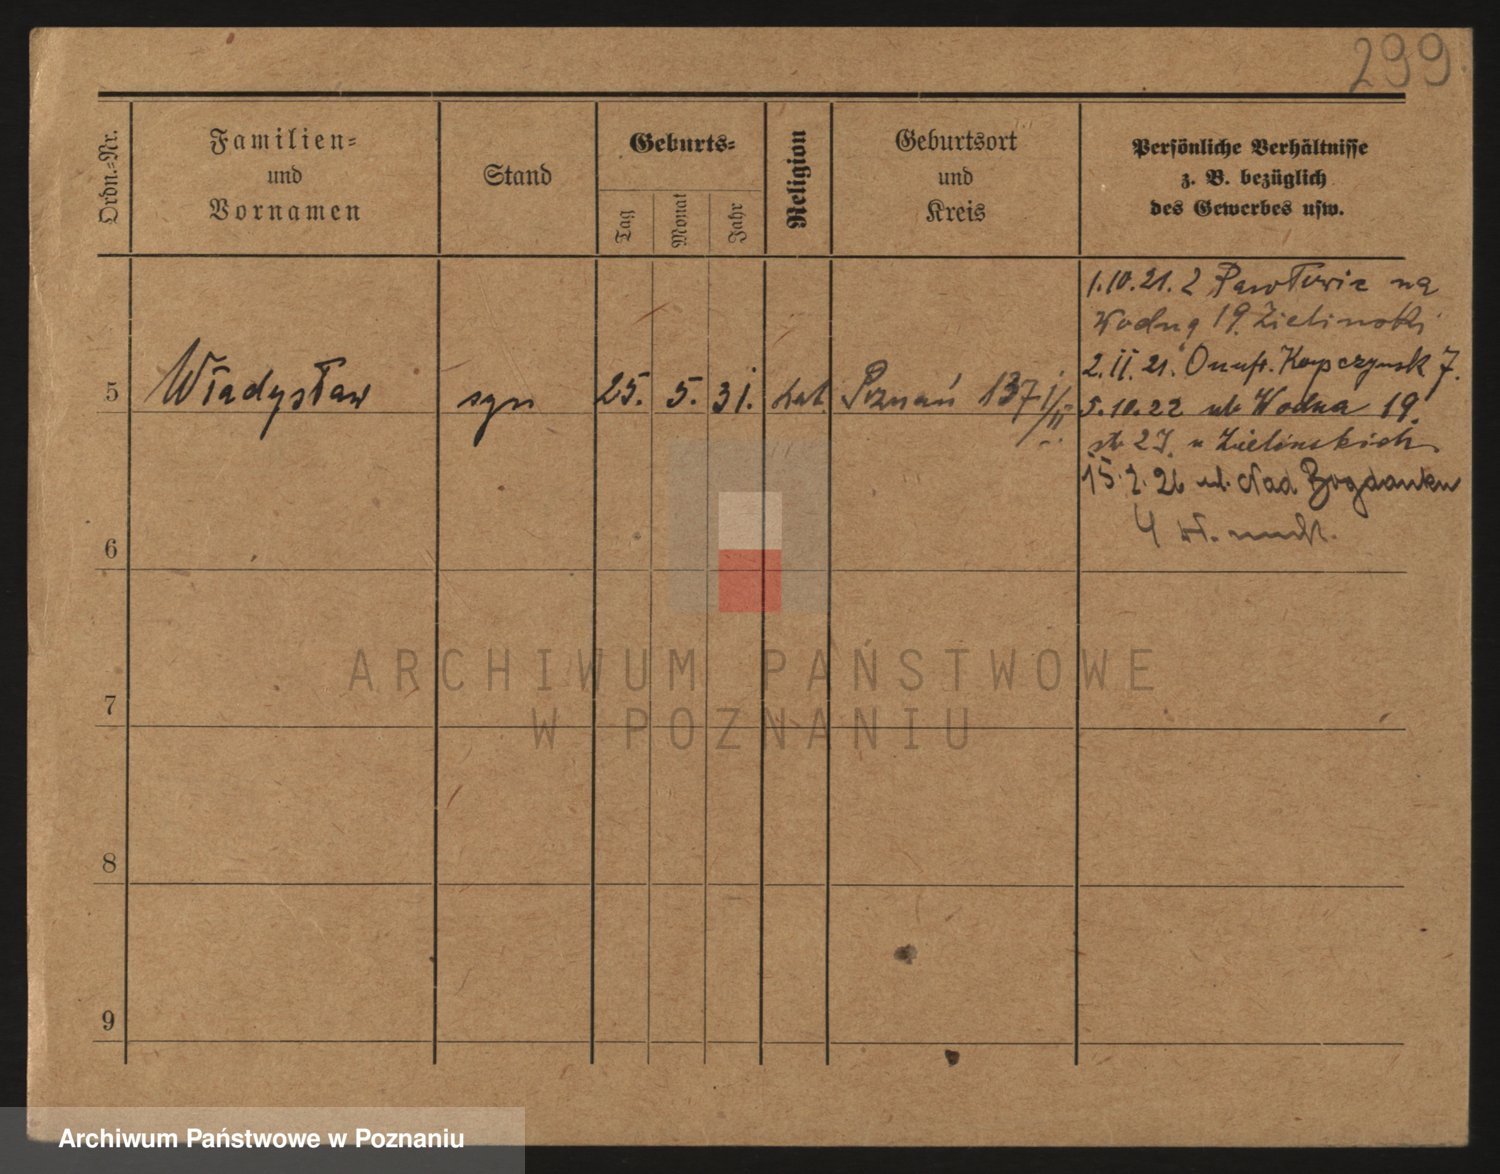 299
Ordn.-Nr.
Familien-
und
Vornamen
Stand
Geburts-
Tag
Monat
Jahr
Religion
Geburtsort
und
Kreis
Persönliche Verhältnisse
z. B. bezüglich
des Gewerbes usw.
5
Władysław
syn
25.
5.
31.
kat.
Poznań 137
1.10.21. z Pawłowic na
Wodną 19. Zielinski
2.11.21. Onufr. Kopczynsk 7.
5.10.22 ul. Wodna 19.
u Zielinskich
15.2.26 ul. Nad Bogdanką
4
6
7
8
9
ARCHIWUM PAŃSTWOWE
W POZNANIU
Archiwum Państwowe w Poznaniu